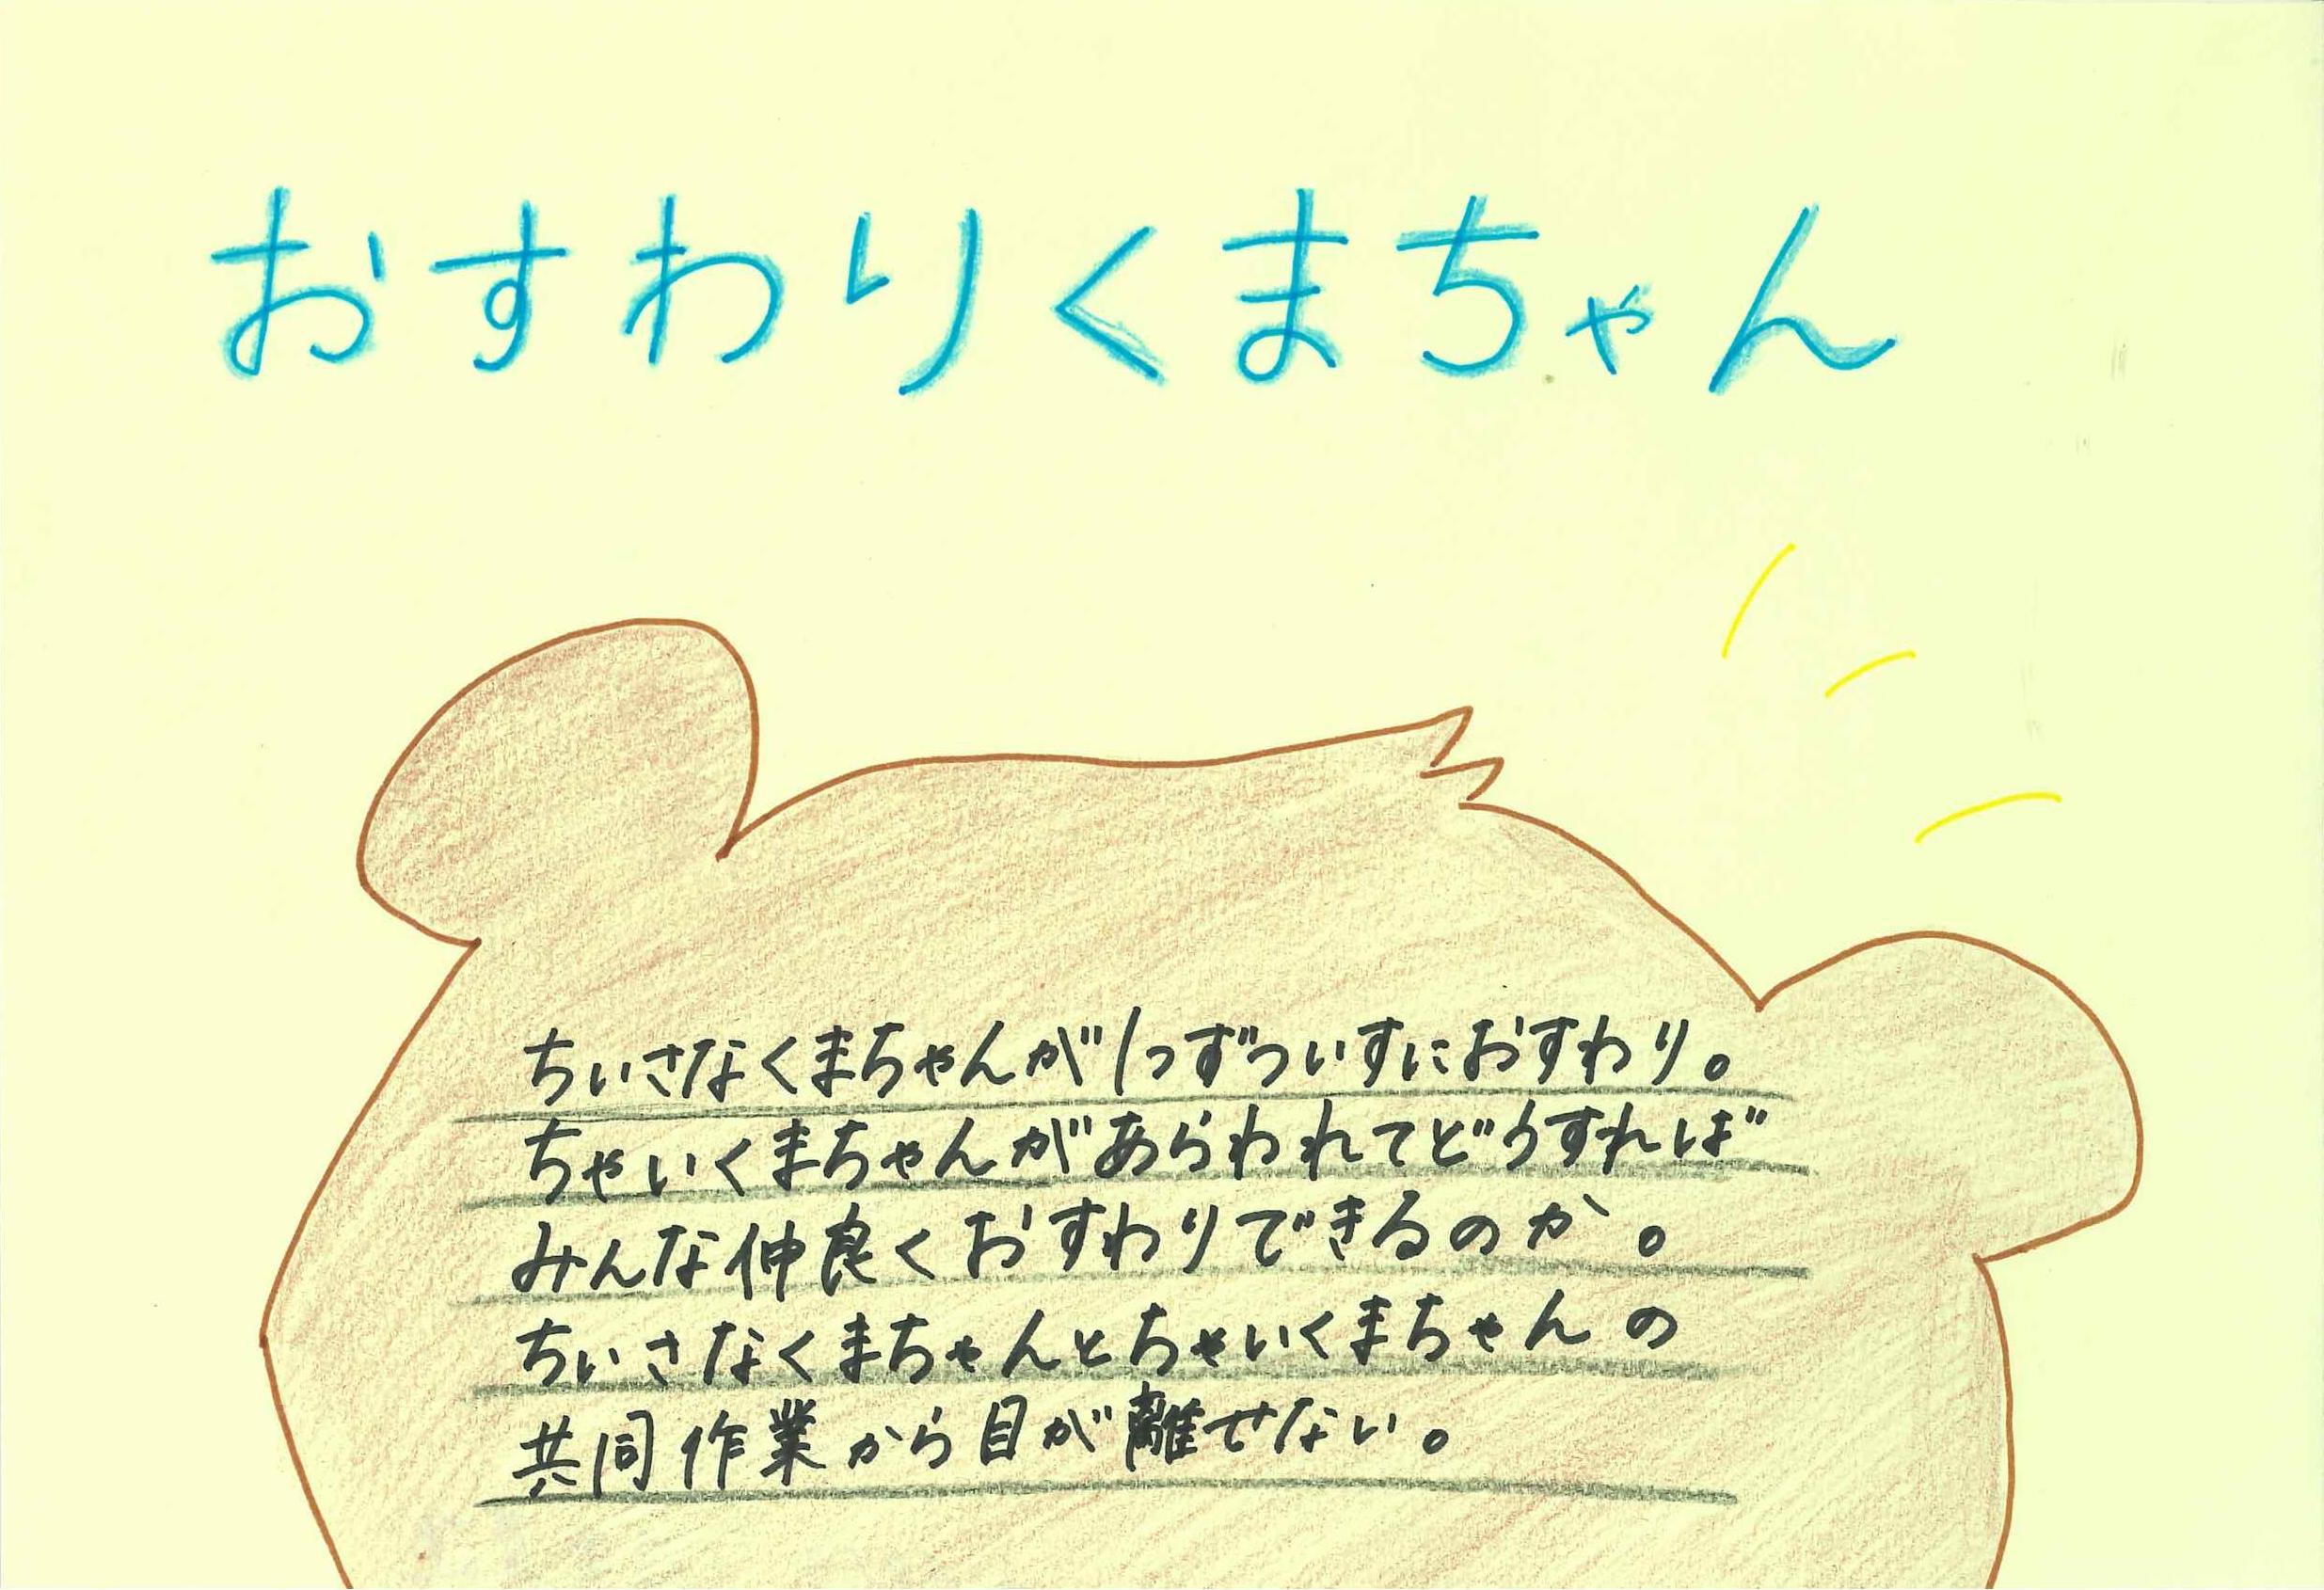 おすわりくまちゃん
ちいさなくまちゃんが1つずついすにおすわり。
ちゃいくまちゃんがあらわれてどうすれば
みんな仲良くおすわりできるのか。
ちいさなくまちゃんとちゃいくまちゃんの
共同作業から目が離せない。